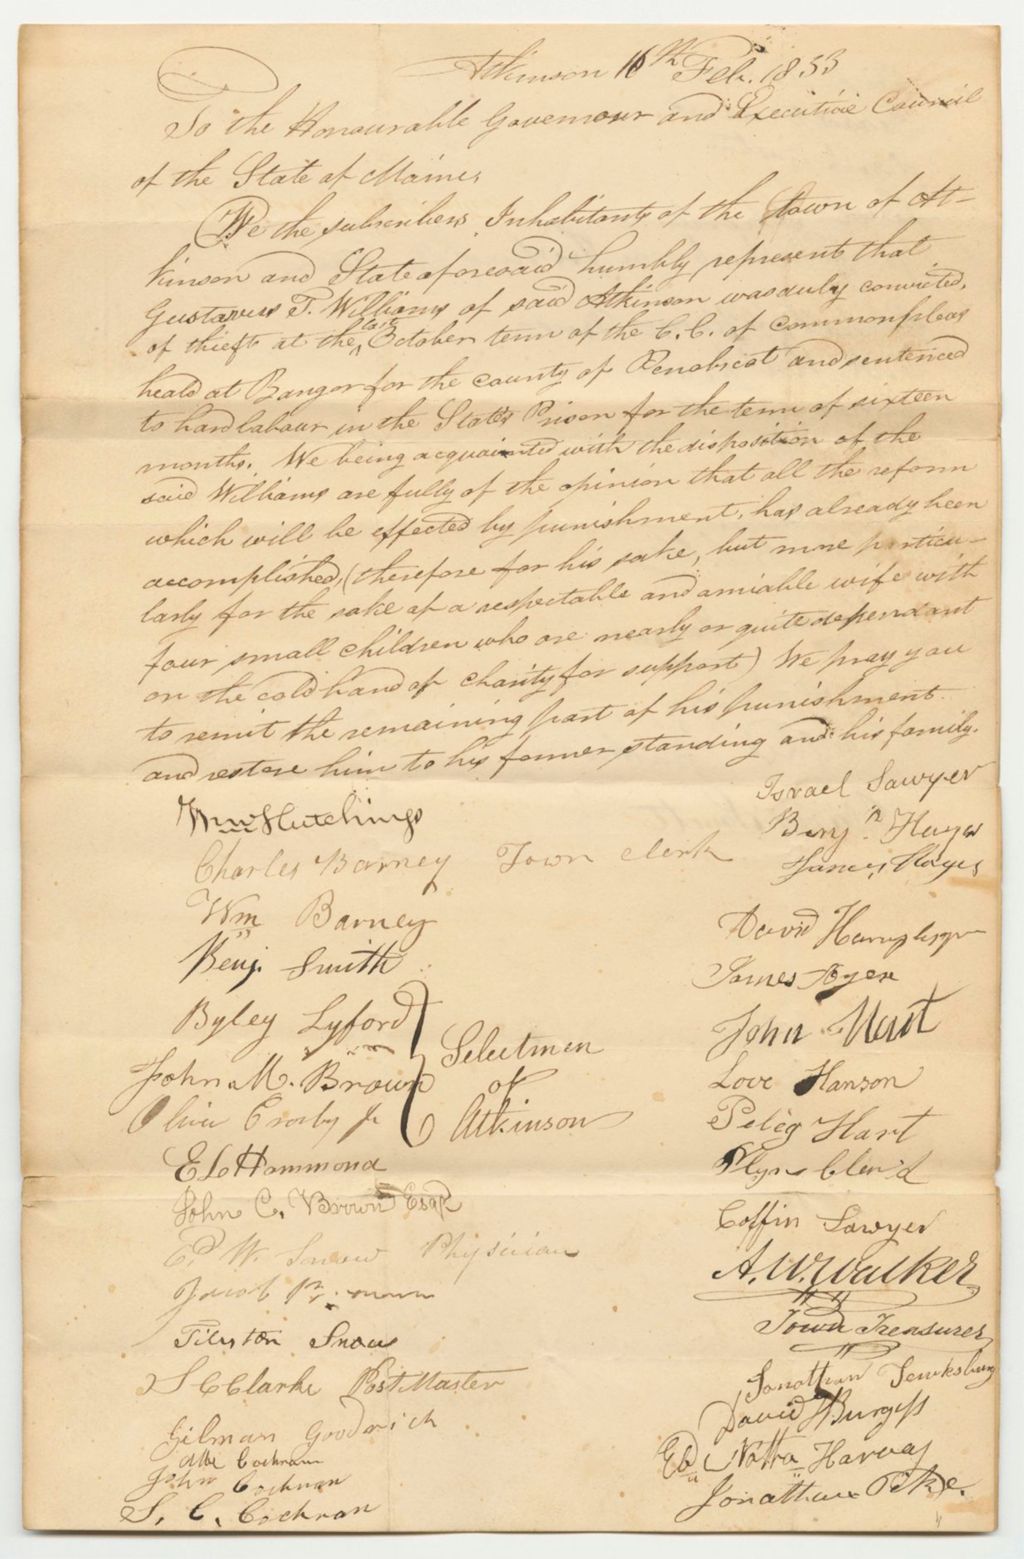 Atkinson 16th Feb. 1833
To the Honourable Governour and Executive Council
of the State of Maine,
We the subscribers Inhabitants of the town of At-
kinson and State aforesaid humbly represent that
Gustavus T. Williams of said Atkinson was duly convicted,
of theft at the last October term of the C.C. of Common pleas
heald at Bangor for the county of Penobscot and sentenced
to hard labour in the State's Prison for the term of sixteen
months. We being acquainted with the disposition of the
said Williams are fully of the opinion that all the reform
which will be effected by punishment, has already been
accomplished, (therefore for his sake, but more particu-
larly for the sake of a respectable and amiable wife with
four small children who are nearly or quite dependant
on the cold hand of charity for support) We pray you
to remit the remaining part of his punishment
and restore him to his former standing and his family.
Wm Hutchings
Charles Barney Town Clerk
Wm Barney
Benj. Smith
Byley Lyford
John M. Brown
Oliver Crosby Jr
Selectmen
of
Atkinson
E L Hammond
John C. Brown Esqr
E. W. Snow Physician
Jacob
Tileston Snow
S C Clarke Post Master
Gilman Gooderich
Cochran
John Cochran
S. C. Cochran
Israel Sawyer
Benjn Hayes
James Hayes
David
James Ayer
John Hart
Love Hanson
Peleg Hart
Coffin Sawyer
A. W. Walker
Town Treasurer
Jonathan Tewksbury
David Burgess
Harvey
Jonathan Pike.